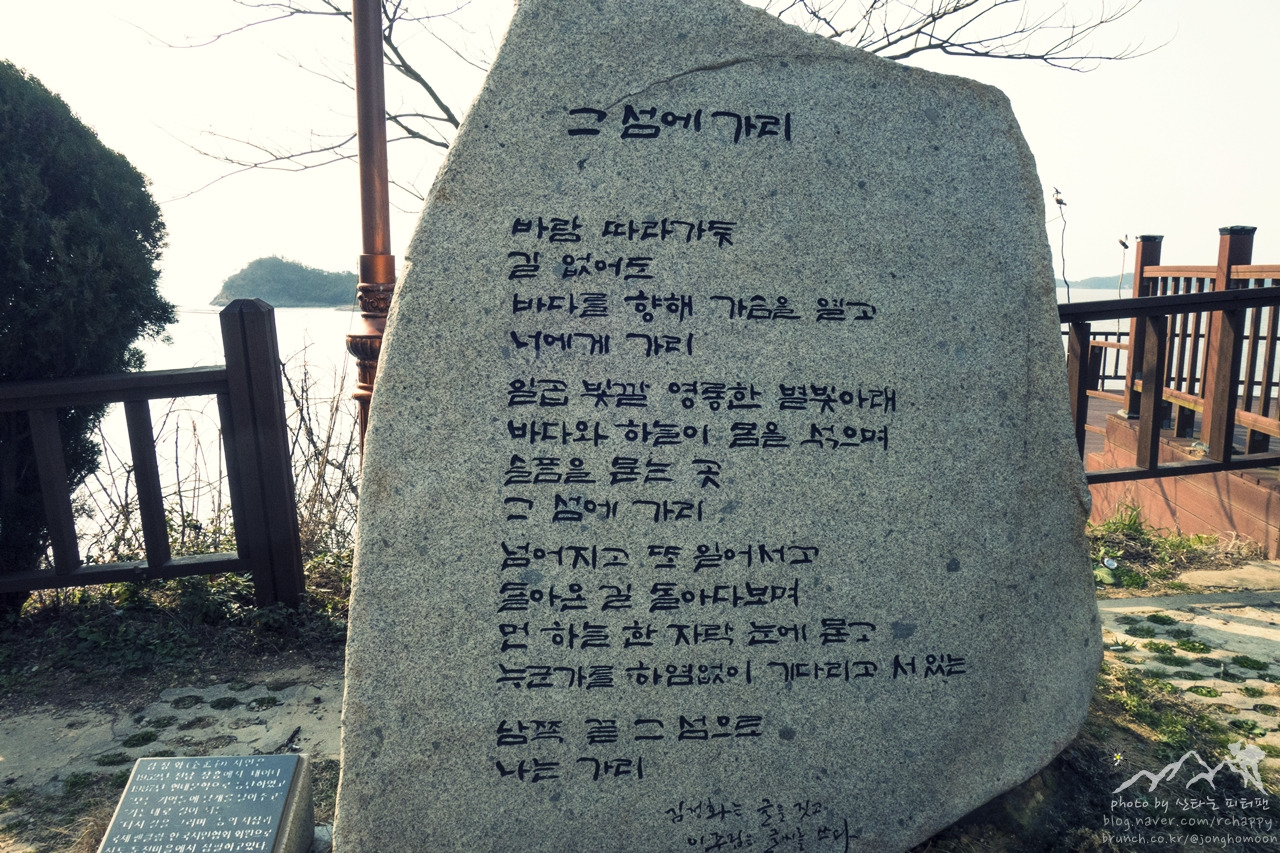 그 섬에 가리
바람 따라가듯
길 없어도
바다를 향해 가슴을 열고
너에게 가리
일곱 빛깔 영롱한 별빛아래
바다와 하늘이 몸을 섞으며
슬픔을 묻는 곳
그 섬에 가리
넘어지고 또 일어서고
돌아온 길 돌아다보며
먼 하늘 한 자락 눈에 묻고
누군가를 하염없이 기다리고 서 있는
남쪽 끝 그 섬으로
나는 가리
김정화는 글을 짓고
글씨를 쓰다
시인은
1952년 전남 장흥에서 태어나
한국시인협회 회원으로
photo by 산타는 피터팬
blog.naver.com/rchappy
brunch.co.kr/@jonghomoon